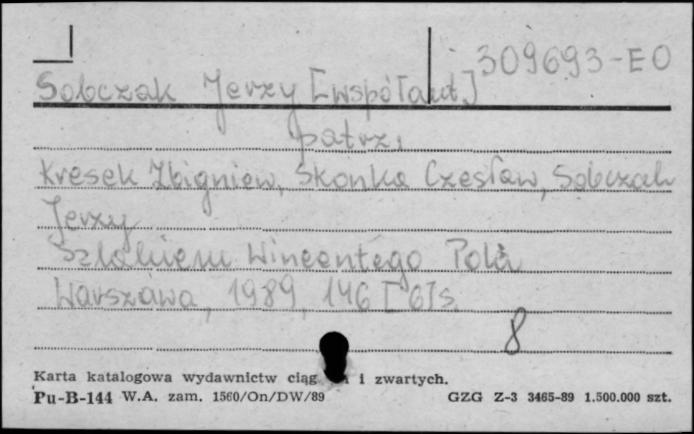 309693-EO
Sobczak Jerzy [współaut.]
patrz,
Kresek Zbigniew, Skonka Czesław, Sobczak
Jerzy
Szlakiem Wincentego Pola
Warszawa, 1989, 146 [6] s.
8
Karta katalogowa wydawnictw ciąg i zwartych.
Pu-B-144 W.A. zam. 1560/On/DW/89 GZG Z-3 3465-89 1.500.000 szt.